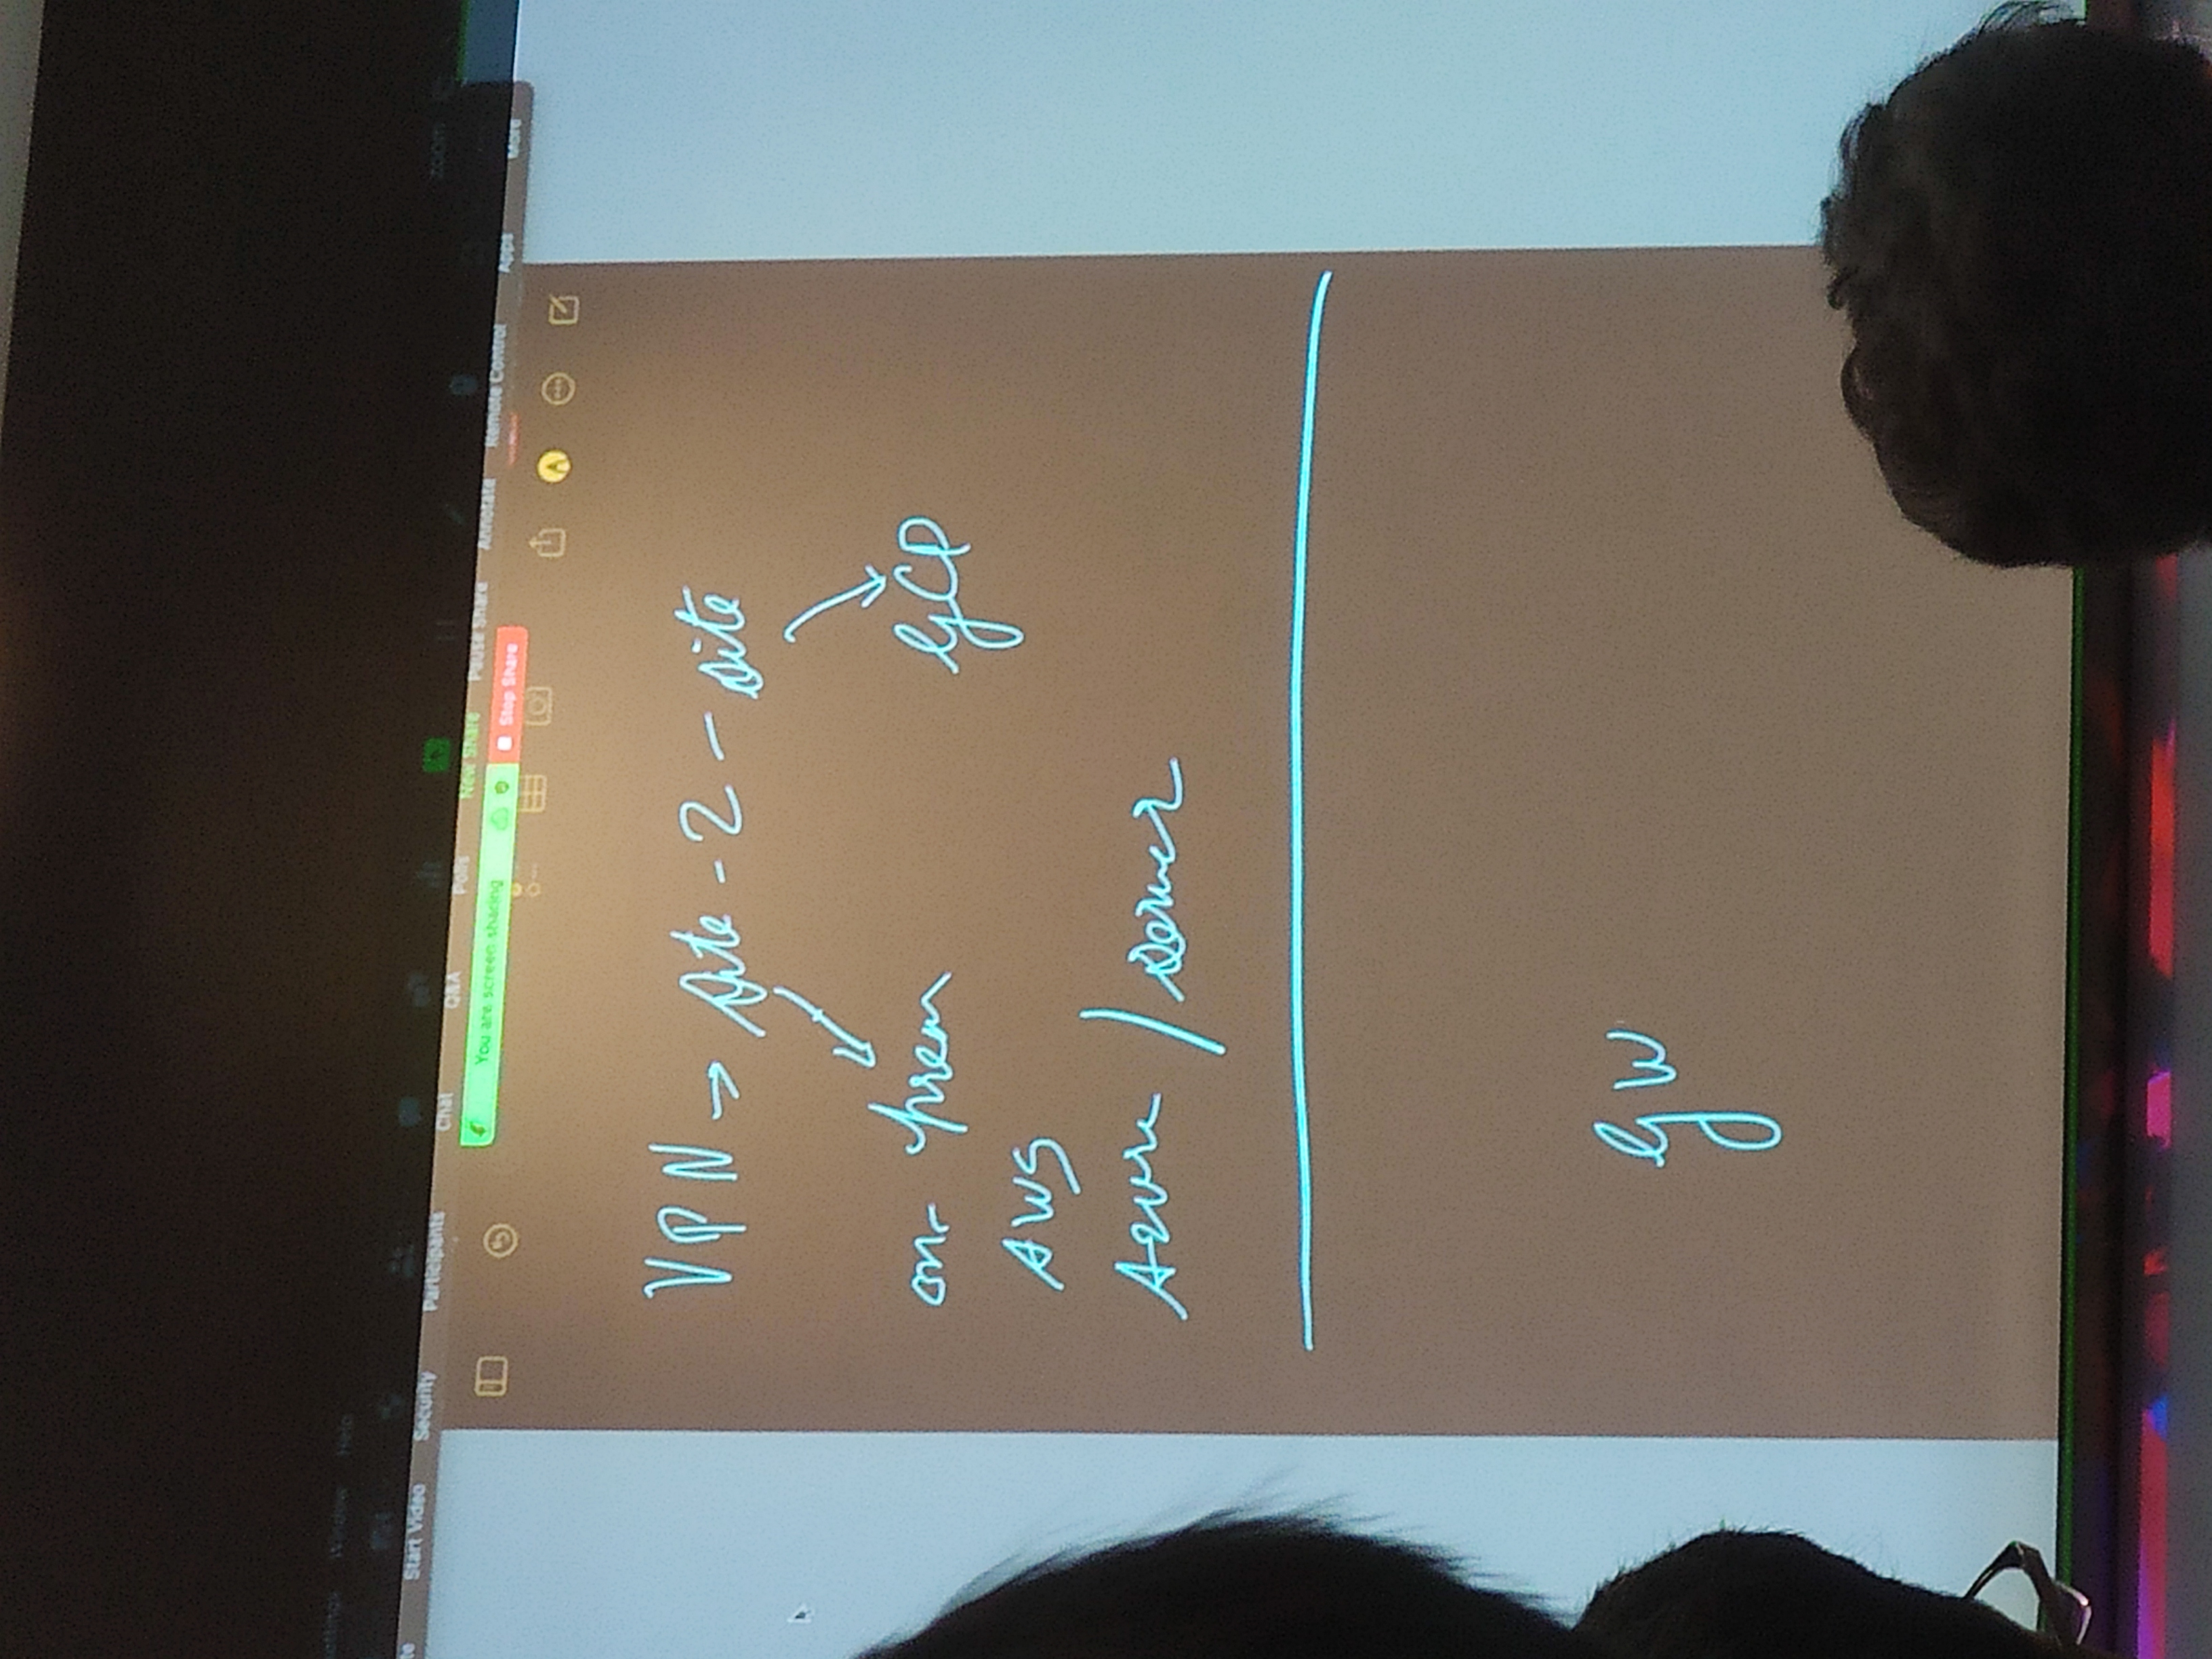 Window Help
Start Video Security Participants Chat Q&A Polls New Share Pause Share Annotate Remote Control Apps More
zoom
You are screen sharing Stop Share
VPN → Site - 2 - site
on prem GCP
AWS
Azure / server
GW